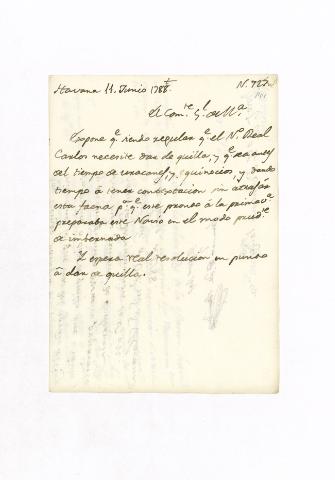 Havana 11. Junio 1788
N. 727
El Com.te G.l de M.a
Expone q.e siendo regular q.e el N.o Real
Carlos necesite dar de quilla, y q.e sea antes
del tiempo de uracanes, y equinocios, y dando
tiempo á tener contestacion sin atrasar
esta faena p.a q.e esté pronto á la primav.a
preparará este Navio en el modo
de invernada
Y espera real resolucion en punto
á dar de quilla.